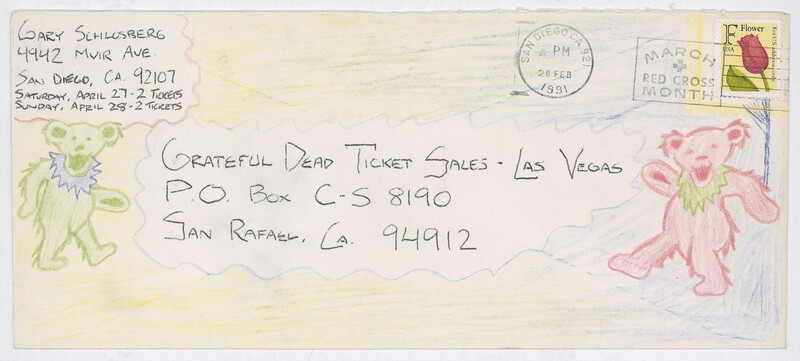 Gary Schlosberg
4942 Muir Ave.
San Diego, Ca. 92107
Saturday, April 27-2 Tickets
Sunday, April 28-2 Tickets
SAN DIEGO CA 921
PM
28 FEB
1991
MARCH
RED CROSS
MONTH
F Flower
USA
For U.S. addresses only
Grateful Dead Ticket Sales - Las Vegas
P.O. Box C-S 8190
San Rafael, Ca. 94912